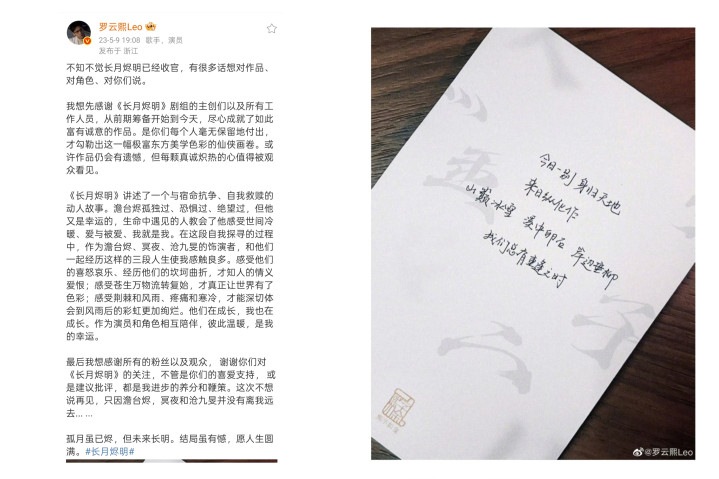 罗云熙Leo
23-5-9 19:08 歌手，演员
发布于 浙江
不知不觉长月烬明已经收官，有很多话想对作品、
对角色、对你们说。
我想先感谢《长月烬明》剧组的主创们以及所有工
作人员，从前期筹备开始到今天，尽心成就了如此
富有诚意的作品。是你们每个人毫无保留地付出，
才勾勒出这一幅极富东方美学色彩的仙侠画卷。或
许作品仍会有遗憾，但每颗真诚炽热的心值得被观
众看见。
《长月烬明》讲述了一个与宿命抗争、自我救赎的
动人故事。澹台烬孤独过、恐惧过、绝望过，但他
又是幸运的，生命中遇见的人教会了他感受世间冷
暖、爱与被爱、我就是我。在这段自我探寻的过程
中，作为澹台烬、冥夜、沧九旻的饰演者，和他们
一起经历这样的三段人生使我感触良多。感受他们
的喜怒哀乐、经历他们的坎坷曲折，才知人的情义
爱恨；感受苍生万物流转复始，才真正让世界有了
色彩；感受荆棘和风雨、疼痛和寒冷，才能深切体
会到风雨后的彩虹更加绚烂。他们在成长，我也在
成长。作为演员和角色相互陪伴，彼此温暖，是我
的幸运。
最后我想感谢所有的粉丝以及观众， 谢谢你们对
《长月烬明》的关注，不管是你们的喜爱支持， 或
是建议批评，都是我进步的养分和鞭策。这次不想
说再见，只因澹台烬，冥夜和沧九旻并没有离我远
去... ...
孤月虽已烬，但未来长明。结局虽有憾，愿人生圆
满。#长月烬明#
今日一别 身归天地
来日纵化作
山巅冰雪 溪中卵石 岸边垂柳
我们总有重逢之时
@罗云熙Leo